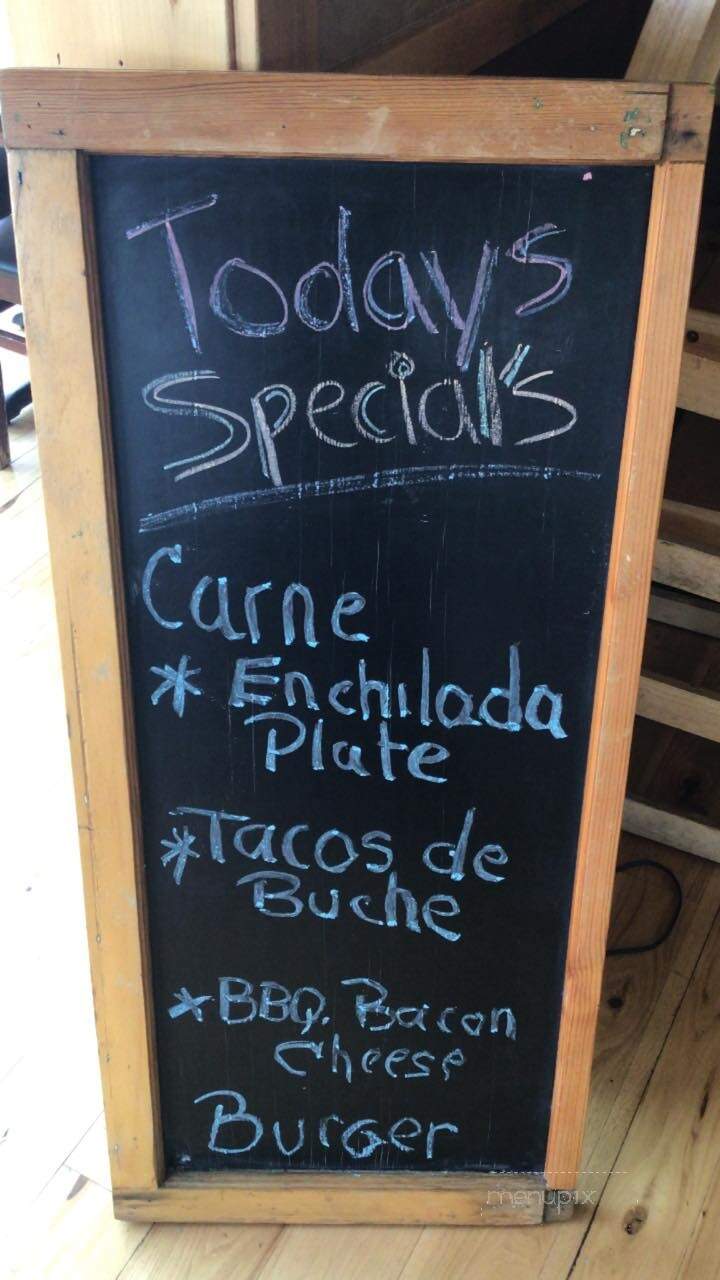 Todays
Special's
Carne
* Enchilada
Plate
* Tacos de
Buche
* BBQ. Bacon
Cheese
Burger
menupix